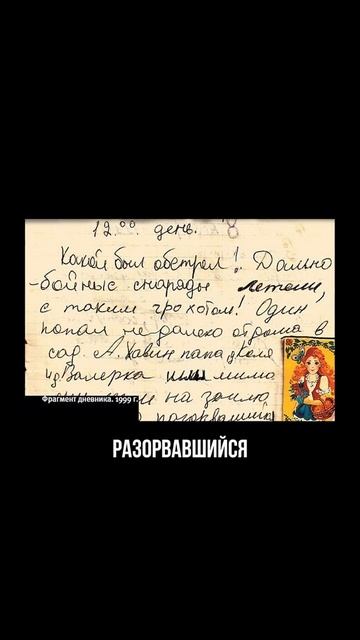 12.00 день.
Какой был обстрел! Дально
-бойные снаряды летели,
с таким грохотом! Один
попал недалеко от дома в
сад. А. Хавин папа Коля
и Валерка шли мимо
на землю
Фрагмент дневника. 1999 г.
РАЗОРВАВШИЙСЯ